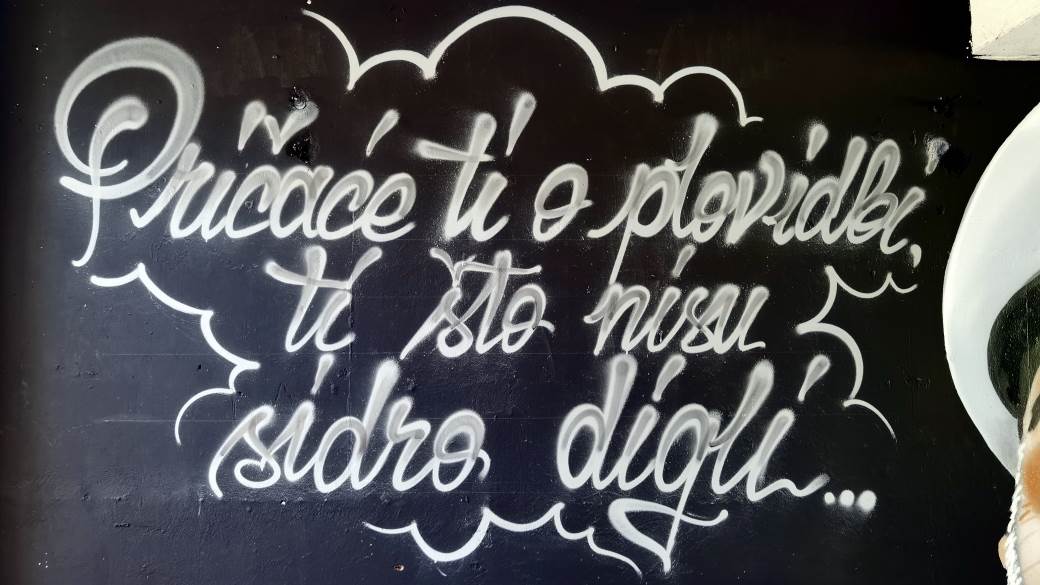 Pričaće ti o plovidbi,
ti što nisu
sidro digli...